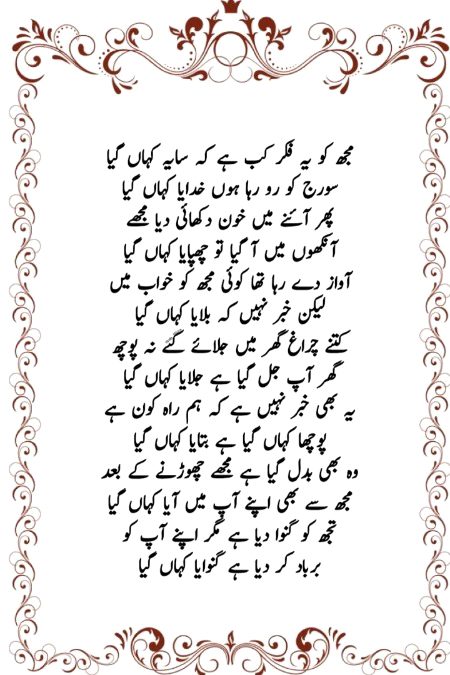 مجھ کو یہ فکر کب ہے کہ سایہ کہاں گیا
سورج کو رو رہا ہوں خدایا کہاں گیا
پھر آئنے میں خون دکھائی دیا مجھے
آنکھوں میں آ گیا تو چھپایا کہاں گیا
آواز دے رہا تھا کوئی مجھ کو خواب میں
لیکن خبر نہیں کہ بلایا کہاں گیا
کتنے چراغ گھر میں جلائے گئے نہ پوچھ
گھر آپ جل گیا ہے جلایا کہاں گیا
یہ بھی خبر نہیں ہے کہ ہم راہ کون ہے
پوچھا کہاں گیا ہے بتایا کہاں گیا
وہ بھی بدل گیا ہے مجھے چھوڑنے کے بعد
مجھ سے بھی اپنے آپ میں آیا کہاں گیا
تجھ کو گنوا دیا ہے مگر اپنے آپ کو
برباد کر دیا ہے گنوایا کہاں گیا